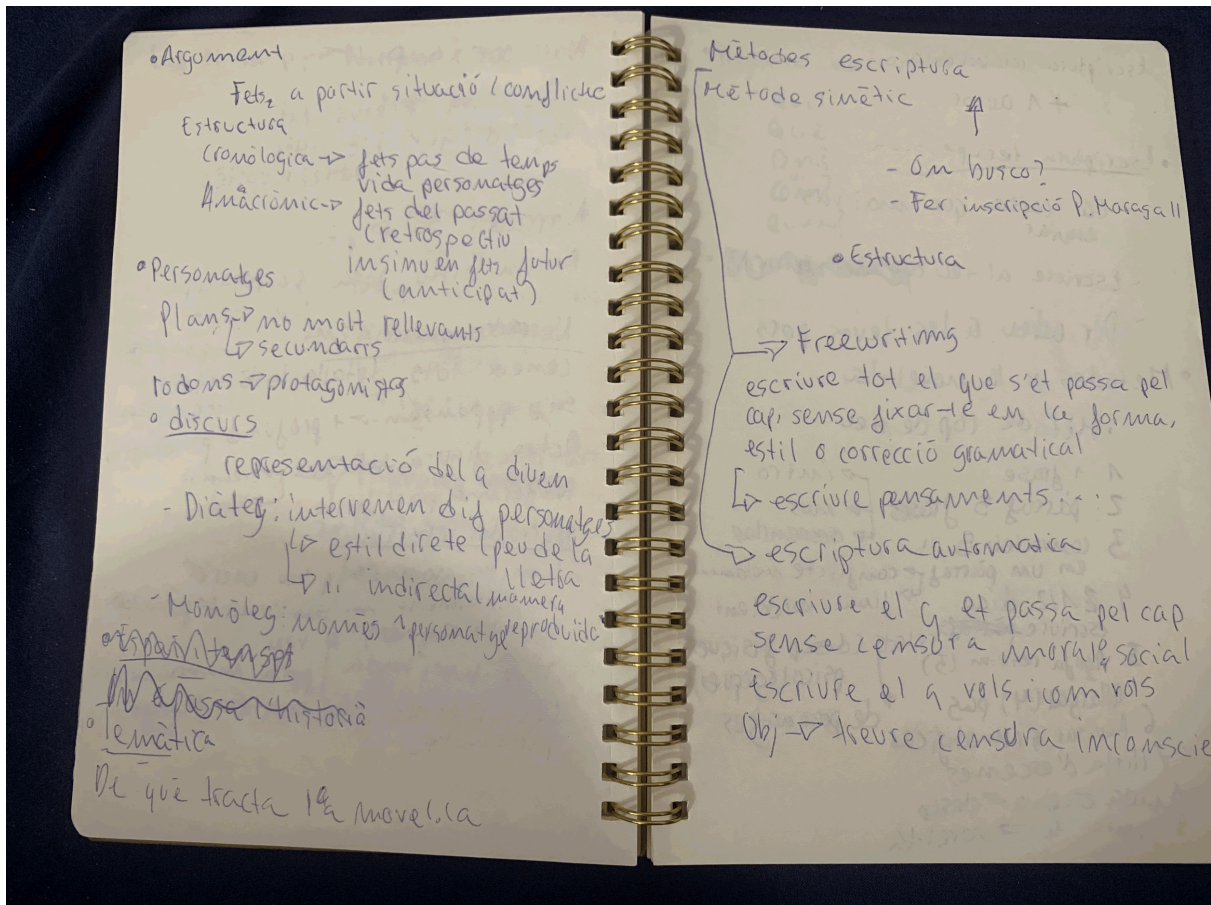 •Argument
Fets a partir situació/conflicte
Estructura
Cronòlogica → fets pas de temps
vida personatges
Anàcrònic → fets del passat
(retrospectiu
insinuen fets futur
(anticipat)
•Personatges
Plans → no molt rellevants
↳ secundaris
rodons → protagonistes
• discurs
representació del q diuen
- Diàleg: intervenen dif personatges
↳ estil directe (peu de la
lletra
↳ " indirecta/manera
- Monòleg: només 1 personatge
• Espai/temps
passa història
• Temàtica
De què tracta la novel.la
Mètodes escriptura
Mètode sinètic
- On busco?
- Fer inscripció P. Maragall
• Estructura
→ Freewriting
escriure tot el que s'et passa pel
cap, sense fixar-te en la forma,
estil o correcció gramatical
↳ escriure pensaments...
→ escriptura automatica
escriure el q et passa pel cap
sense censura moral o social
èscriure el q vols i com vols
Obj → treure censura inconscie